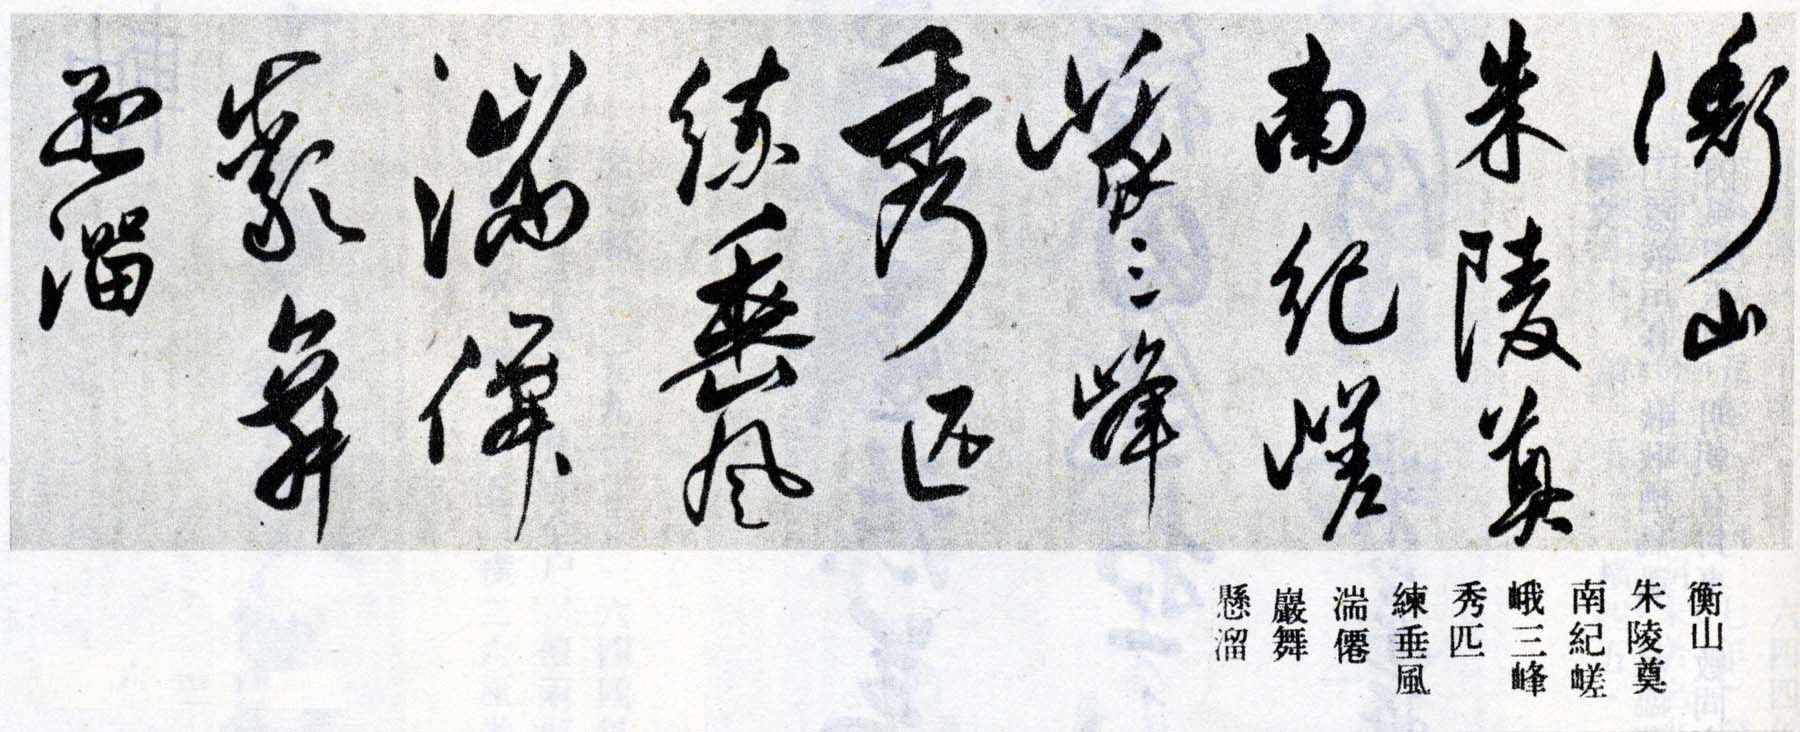 衡山
朱陵奠
南紀嵯
峩三峰
秀匹
練垂風
湍僊
巖舞
懸溜
衡山
朱陵奠
南紀嵯
峨三峰
秀匹
練垂風
湍僊
巖舞
懸溜